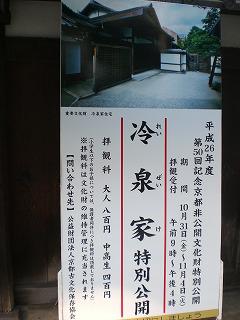 重要文化財 冷泉家住宅
平成26年度
第50回記念京都非公開文化財特別公開
期間 10月31日(金)~11月4日(火)
拝観受付 午前9時~午後4時
れい ぜい け
冷泉家 特別公開
拝観料 大人 八百円 中高生 四百円
※拝観料は文化財の維持管理に充当されます
【問い合わせ先】
公益財団法人京都古文化保存協会